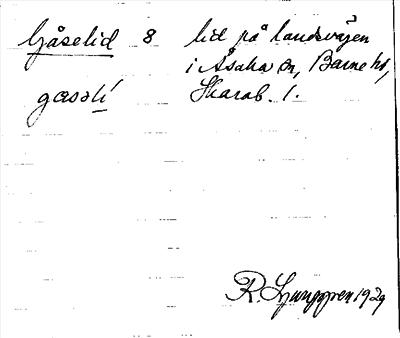 Gåselid 8 lid på landsvägen
i Åsaka sn, Barne hd,
gasəlí Skarab. l.
R. Ljunggren 1929